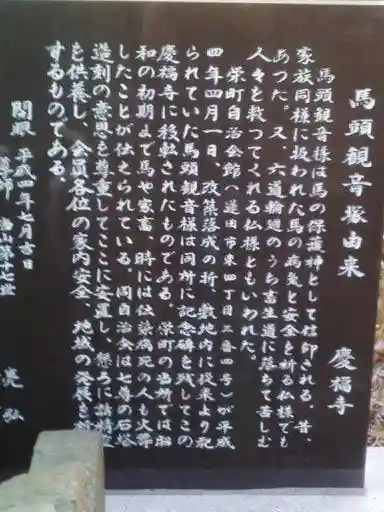 馬頭観音塚由来　慶福寺
馬頭観音様は馬の保護神として信仰される。昔、
家族同様に扱われた馬の病気と安全を祈る仏様でも
あつた。又、六道輪廻のうち畜生道に落ちて苦しむ
人々を救つてくれる仏様ともいわれた。
栄町自治会館(蓮田市東四丁目二番四号)が平成
四年四月一日、改築落成の折、敷地内に従来より祀
られていた馬頭観音様は同所に記念碑を残してこの
慶福寺に移転されたものである。栄町の当所では昭
和の初期まで馬や家畜、時には伝染病死の人も火葬
したことが伝えられている。同自治会は七尊の石塔
造刻の意思を尊重してここに安置し、懇ろに諸精霊
を供養し、会員各位の家内安全、地域の発展を祈
するものである。
開眼　平成四年七月吉日
導師
亮弘